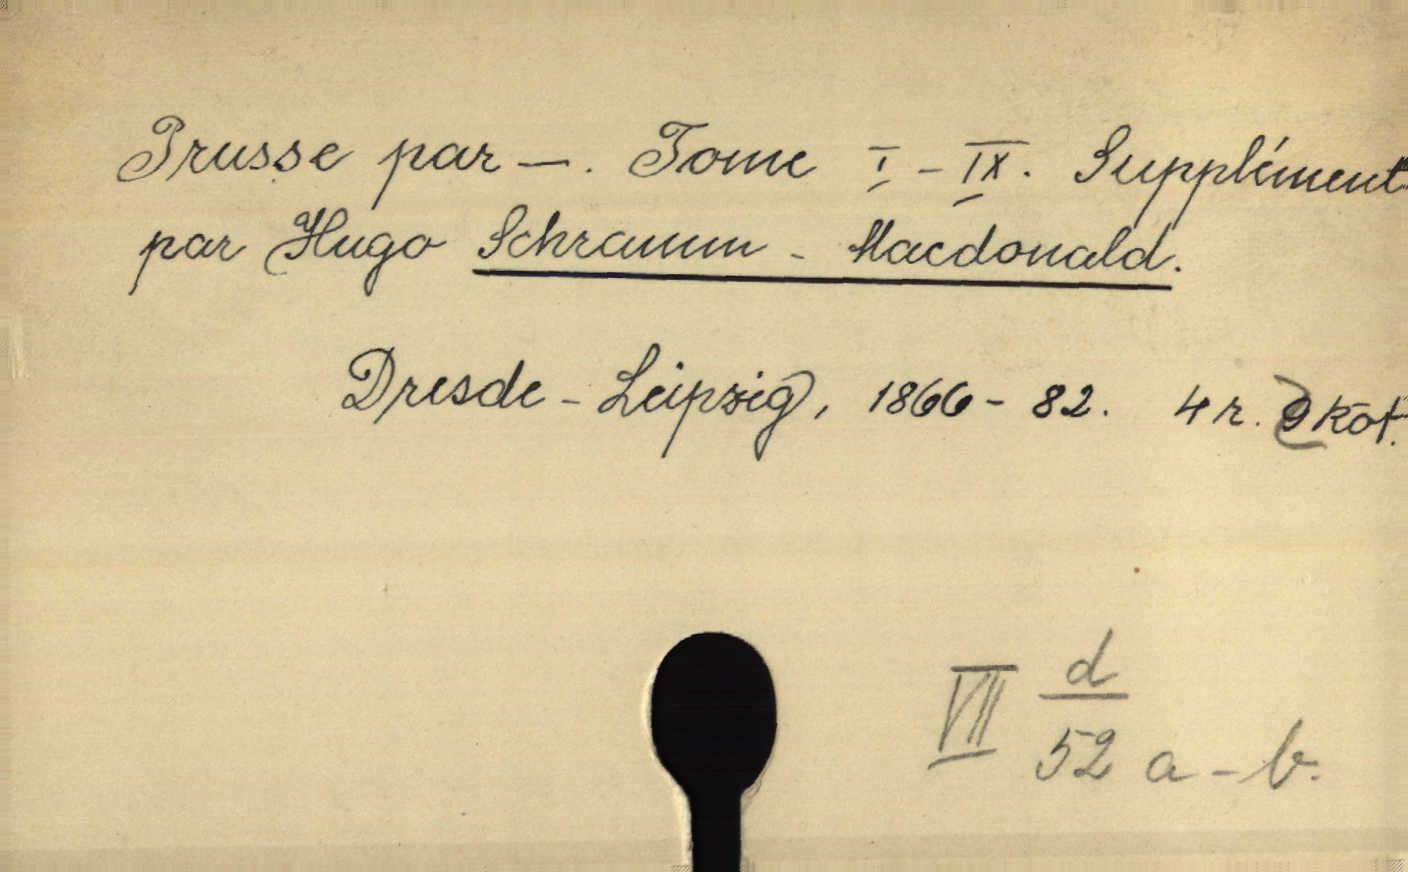 Prusse par —. Tome I - IX. Supplément
par Hugo Schramm - Macdonald.
Dresde - Leipzig, 1866 - 82. 4 r. 9 köt.
VII d
52 a - b.